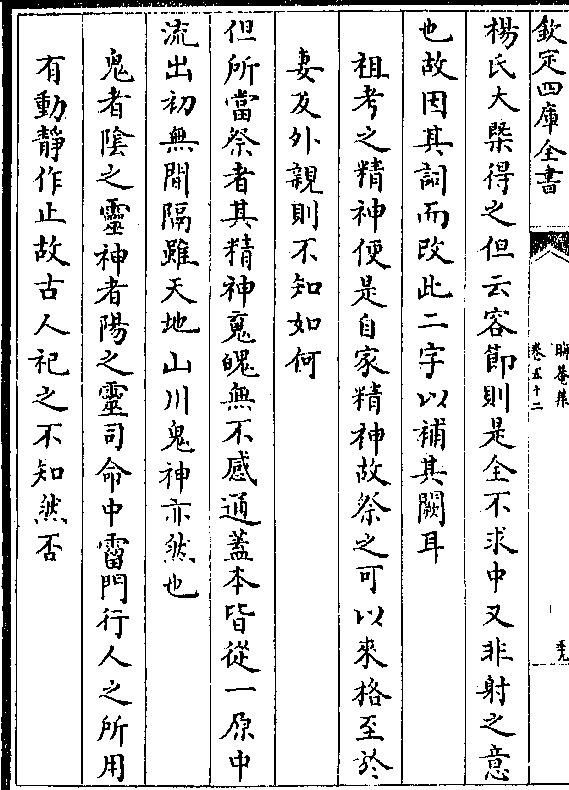 欽定四庫全書
晦菴集
卷五十二
楊氏大槩得之但云容節則是全不求中又非射之意
也故因其詞而改此二字以補其闕耳
祖考之精神便是自家精神故祭之可以來格至於
妻及外親則不知如何
但所當祭者其精神䰟魄無不感通蓋本皆從一原中
流出初無間隔雖天地山川鬼神亦然也
鬼者陰之靈神者陽之靈司命中霤門行人之所用
有動靜作止故古人祀之不知然否